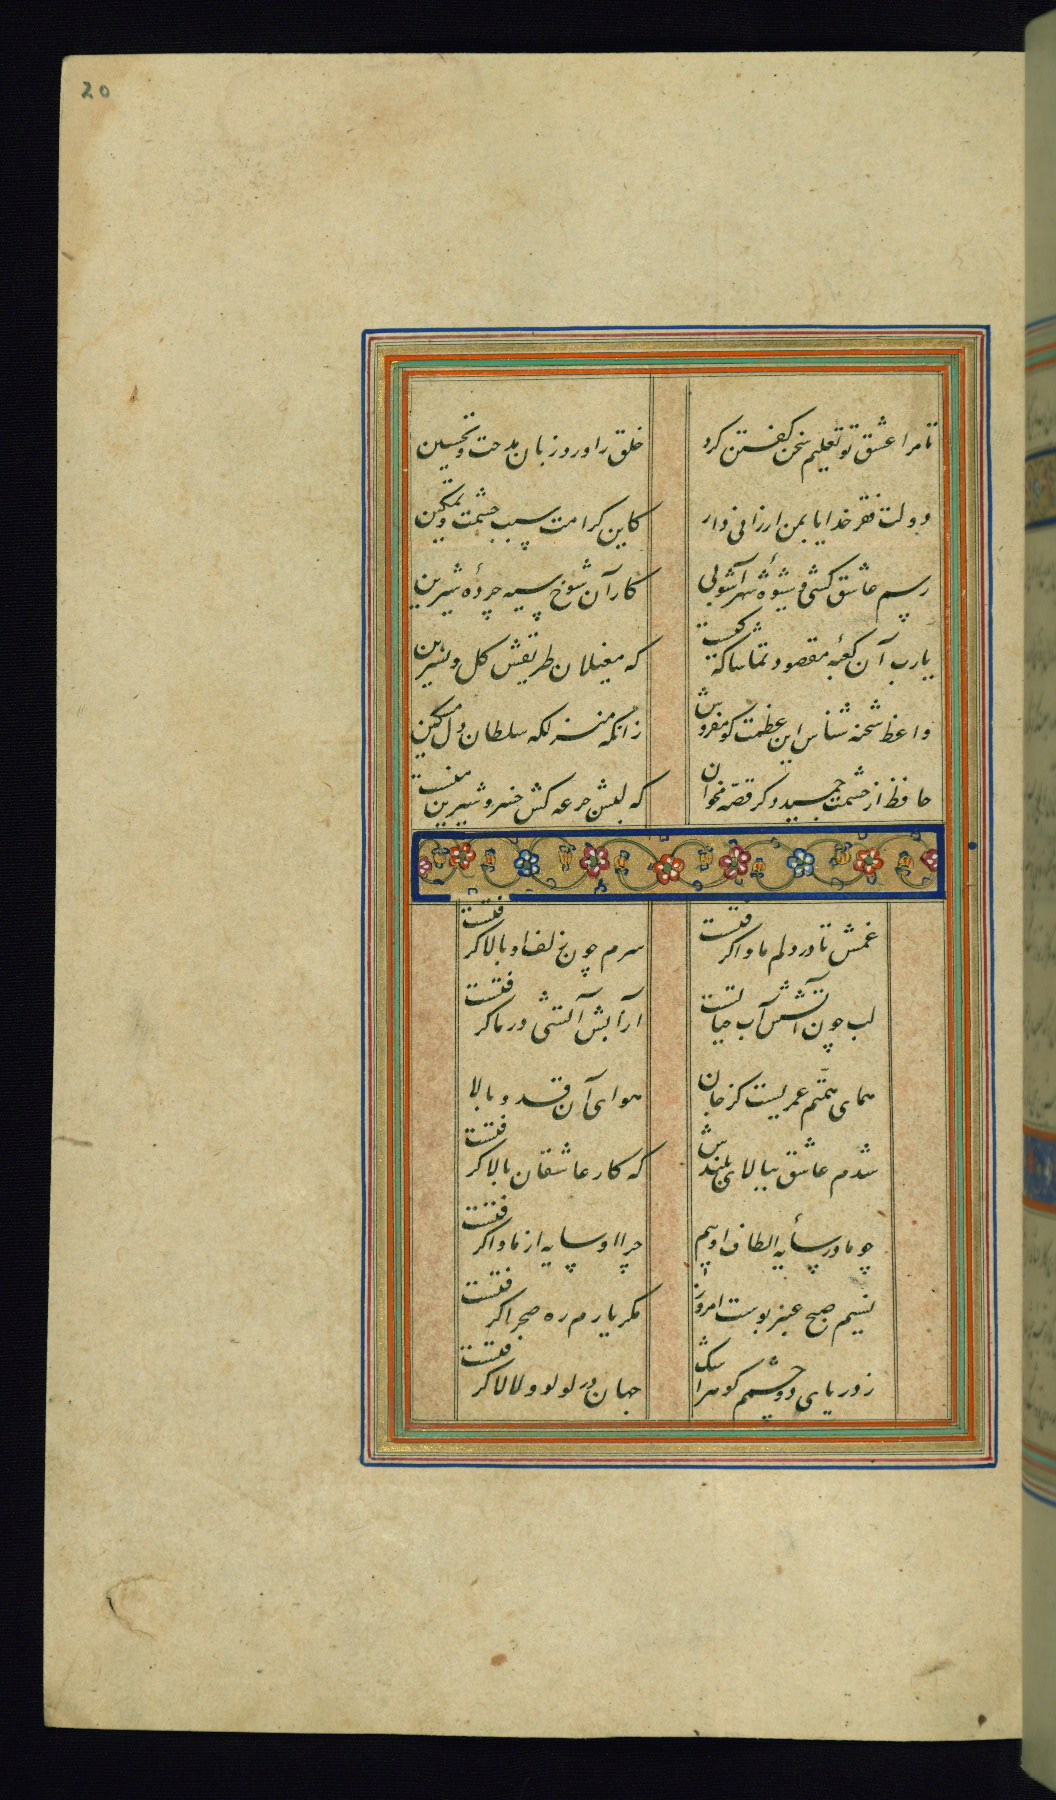 20
تا مرا عشق تو تعلیم سخن کفتن کرد خلق را ورد زبان مدحت و تحسین
دولت فقر خدایا بمن ارزانی دار کاین کرامت سبب حشمت و تمکین
رسم عاشق کشی و شیوهٔ شهر آشوبی کار آن شوخ سیه چردهٔ شیرین
یارب آن کعبهٔ مقصود تماشا که کیست که مغیلان طریقش کل و نسرین
واعظ شحنه شناس این عظمت کو مفروش زانکه منزلکه سلطان دل مسکین
حافظ از حشمت جمشید دکر قصّه مخوان که لبش جرعه کش خسرو شیرین منست
غمش تا در دلم ماوا کرفتست سرم چون زلف او بالا کرفتست
لب چون آتشش آب حیاتست از آبش آتشی در ما کرفتست
همای همّتم عمریست کز جان هوای آن قد و بالا
شدم عاشق ببالای بلندش که کار عاشقان بالا کرفتست
چو ما در سایهٔ الطاف اوییم چرا او سایه از ما وا کرفتست
نسیم صبح عنبر بوست امروز مکر یارم ره صحرا کرفتست
ز دریای دو چشمم کوهر اشک جهان در لولو لالا کرفتست